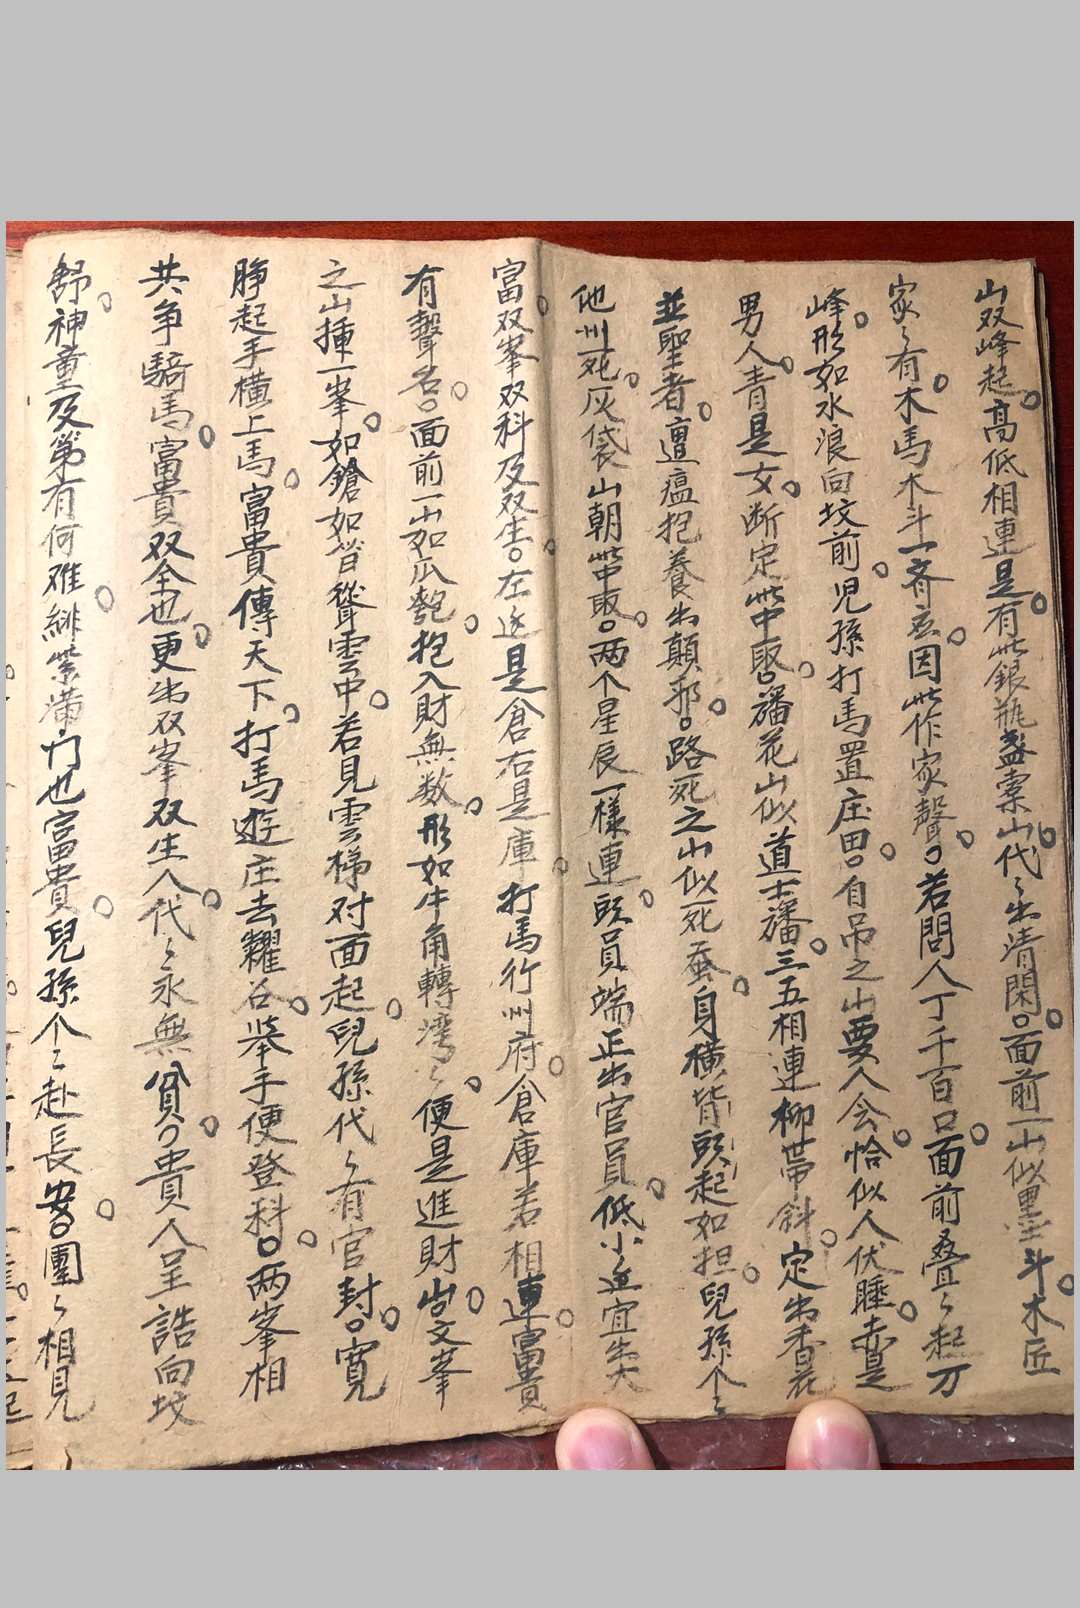 山双峰起。高低相連是有此銀瓶盞索山代〻出清閑。面前一山似墨斗。木匠
家〻有。木馬木斗一齐立因此作家聲。若問人丁千百口面前叠〻起万
峰。形如水浪向坟前。児孫打馬置庄田。自吊之山要人会。恰似人伏睡。赤是
男人。青是女。断定此中取。旛花山似道士旛。三五相連柳帯斜。定出香花
並聖者。遭瘟抱養出顛邪。路死之山似死蚕。身横背頭起如担。兒孫个〻
他州死。灰袋山朝此中取。两个星辰一樣連。頭員端正出官員。低小近宜出大
富。双峯双科及双生。左边是倉右是庫。打馬行州府。倉庫若相連。富貴
有聲名。面前一山如瓜瓠。抱入財無数。形如牛角轉湾〻。便是進財山。文峯
之山揷一峯。如鎗如笋聳雲中。若見雲梯对面起。兒孫代〻有官封。寛
睁起手横上馬。富貴傳天下。打馬遊庄去糶谷。举手便登科。两峯相
共争騎馬。富貴双全也。更出双峯双生人。代〻永無貧。貴人呈誥向坟
舒。神童及第有何难。緋紫满门也富貴。兒孫个〻赴長安。團〻相見